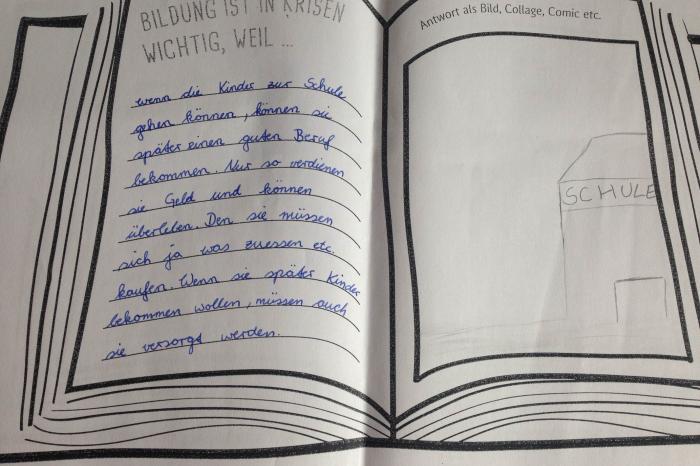 BILDUNG IST IN KRISEN
WICHTIG, WEIL ...
wenn die Kinder zur Schule
gehen können, können sie
später einen guten Beruf
bekommen. Nur so verdienen
sie Geld und können
überleben. Den sie müssen
sich ja was zuessen etc.
kaufen. Wenn sie später Kinder
bekommen wollen, müssen auch
sie versorgt werden.
Antwort als Bild, Collage, Comic etc.
SCHULE